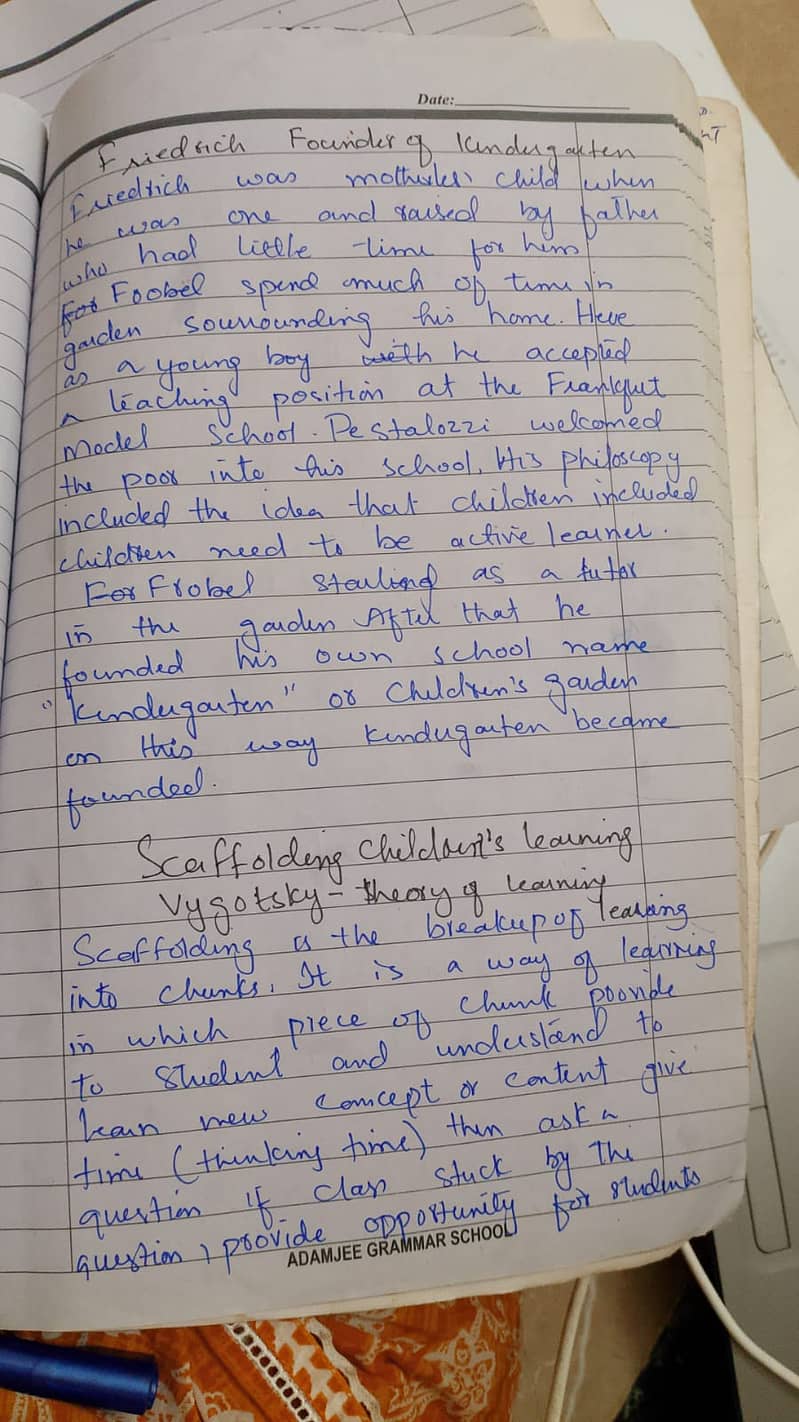 Date:
Friedrich Founder of Kindergarten
Friedrich was motherless child when
he was one and raised by father
who had little time for him
For Foobel spend much of time in
garden sourrounding his home. Here
as a young boy with he accepted
a teaching position at the Frankfurt
Model School. Pestalozzi welcomed
the poor into his school. His philoscopy
included the idea that children included
children need to be active learner.
For Frobel starting as a tutor
in the garden After that he
founded his own school name
"kindergarten" or Children's garden
on this way kindergarten became
founded.
Scaffolding Children's learning
Vygotsky - theory of learning
Scaffolding is the breakup of learning
into chunks. It is a way of learning
in which piece of chunk provide
to student and understand to
learn new concept or content give
time (thinking time) then ask a
question if class stuck by the
question, provide opportunity for students
ADAMJEE GRAMMAR SCHOOL